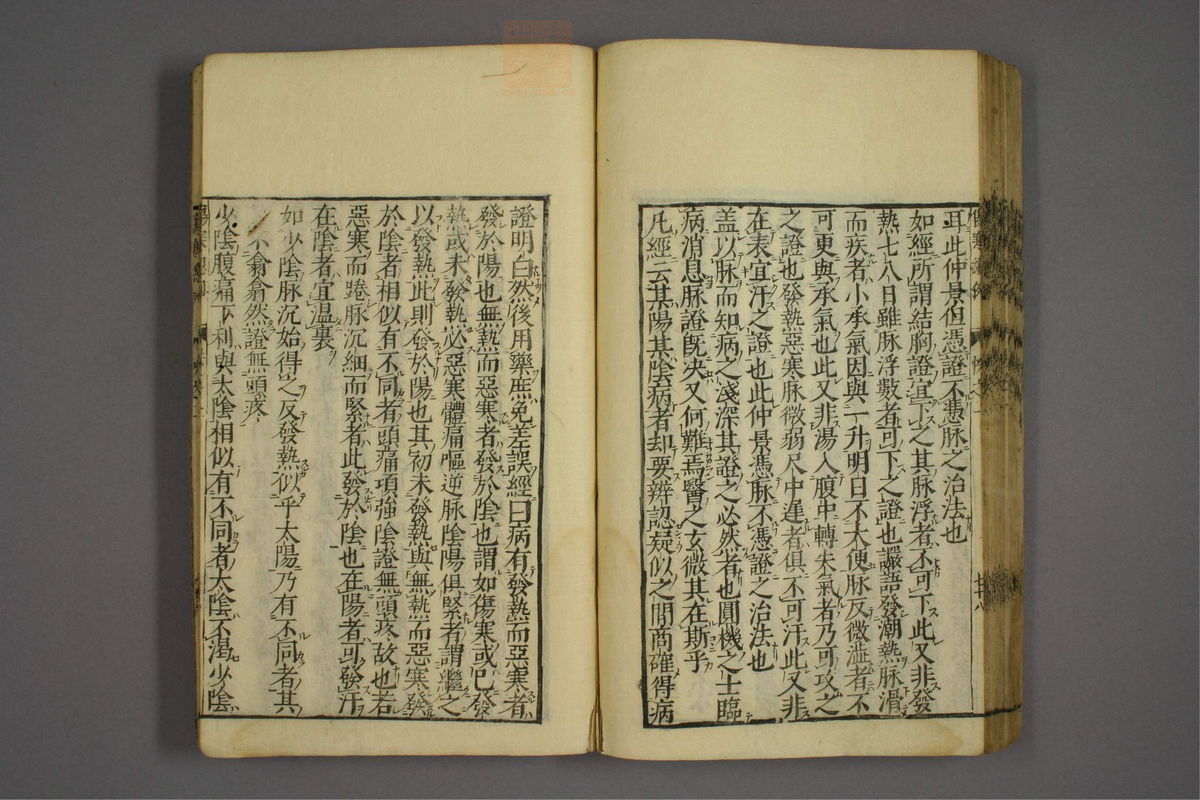 耳此仲景但憑證不憑脉之治法也
如經所謂結胸證宜下之其脉浮者不可下此又非發
熱七八日雖脉浮數者可下之證也讝語發潮熱脉滑
而疾者小承氣因與一升明日不大便脉反微澁者不
可更與承氣也此又非湯入腹中轉失氣者乃可攻之
之證也發熱惡寒脉微弱尺中遲者俱不可汗此又非
在表宜汗之證也此仲景憑脉不憑證之治法也
盖以脉而知病之淺深其證之必然者也圓機之士臨
病消息脉證旣决又何難焉醫之玄微其在斯乎
凡經云某陽某陰病者却要辨認疑似之間商確得病
證明白然後用藥庶免差誤經曰病有發熱而惡寒者
發於陽也無熱而惡寒者發於陰也謂如傷寒或已發
熱或未發熱必惡寒體痛嘔逆脉陰陽俱緊者謂繼之
以發熱此則發於陽也其初未發熱與無熱而惡寒發
於陰者相似有不同者頭痛項強陰證無頭疼故也若
惡寒而踡脉沉細而緊者此發於陰也在陽者可發汗
在陰者宜温裏
如少陰脉沉始得之反發熱似乎太陽乃有不同者其
不翕翕然證無頭疼
少陰腹痛下利與太陰相似有不同者太陰不渴少陰